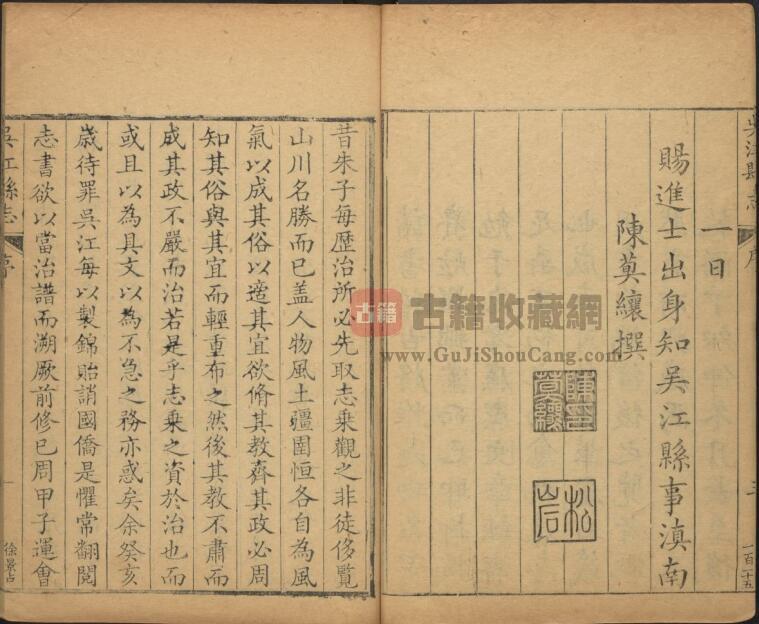 吳江縣志
序
一日
賜進士出身知吳江縣事滇南
陳䓪纕撰
松
岩
三
一百二十五
昔朱子每歷治所必先取志乗觀之非徒侈覽
山川名勝而已盖人物風土疆圉恒各自為風
氣以成其俗以適其宜欲脩其教齊其政必周
知其俗與其宜而輕重布之然後其教不肅而
成其政不嚴而治若是乎志乗之資於治也而
或且以為具文以為不急之務亦惑矣余癸亥
歳待罪吳江每以製錦貽誚國僑是懼常翻閲
志書欲以當治譜而溯厥前修已周甲子運會
吳江縣志
序
一
徐景占
古籍
古籍收藏網
www.GuJiShouCang.com